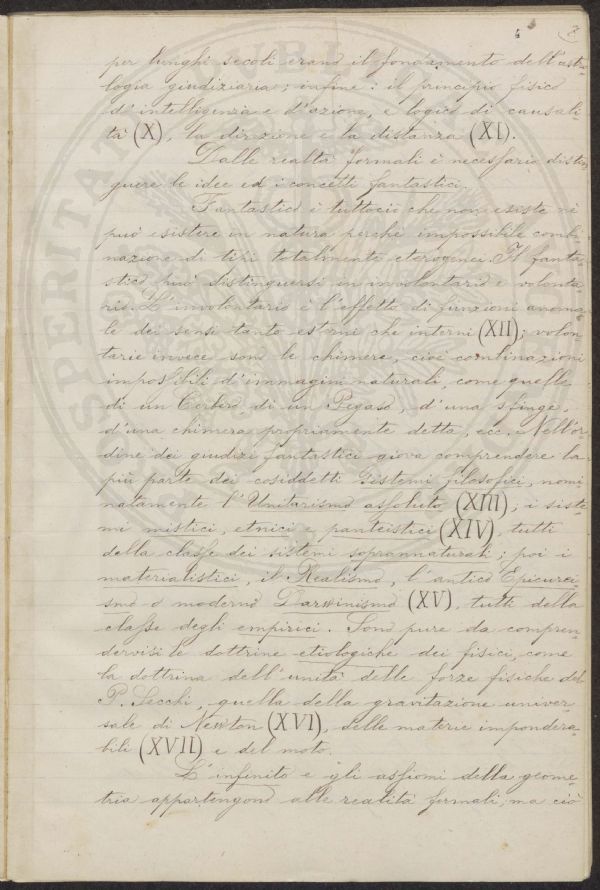 8
per lunghi secoli erano il fondamento dell'astro-
logia giudiziaria; infine: il principio fisico
d'intelligenza e d'azione, e logico di causali-
tà (X), la direzione e la distanza (XI).
Dalle realtà formali è necessario distin-
guere le idee ed i concetti fantastici.
Fantastico è tuttociò che non esiste nè
può esistere in natura perchè impossibile combi-
nazione di tipi totalmente eterogenei. Il fanta-
stico può distinguersi in involontario e volonta-
rio. L'involontario è l'effetto di finzioni anoma-
le dei sensi tanto esterni che interni (XII); volon-
tarie invece sono le chimere, cioè combinazioni
impossibili d'immagini naturali, come quelle
di un Cerbero, di un Pegaso, d'una sfinge,
d'una chimera propriamente detta, ecc. Nell'or-
dine dei giudizi fantastici giova comprendere la
più parte dei cosiddetti sistemi filosofici, nomi
natamente l'Unitarismo assoluto (XIII), i siste-
mi mistici, etnici e panteistici (XIV), tutti
della classe dei sistemi soprannaturali; poi i
materialistici, il Realismo, l'antico Epicurei-
smo o moderno Darwinismo (XV), tutti della
classe degli empirici. Sono pure da compren-
dervisi le dottrine etiologiche dei fisici, come
la dottrina dell'unità delle forze fisiche del
P. Secchi, quella della gravitazione univer
sale di Newton (XVI), delle materie impondera-
bili (XVII) e del moto.
L'infinito e gli assiomi della geome-
tria appartengono alle realità formali; ma ciò